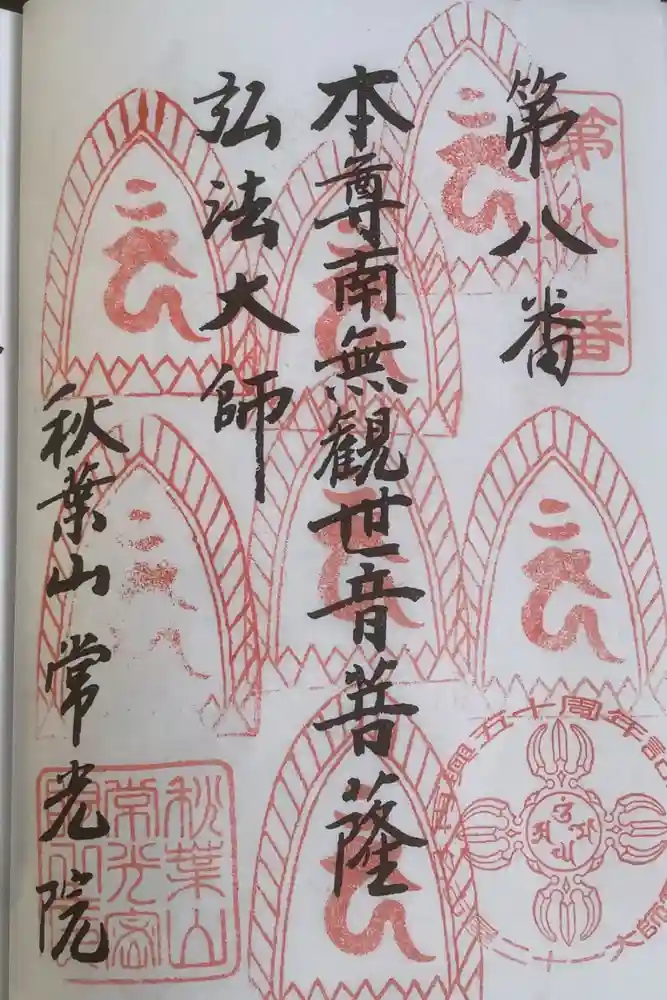 第八番
本尊南無観世音菩薩
弘法大師
秋葉山常光院
第八番
秋葉山
常光密
五十周年記
大師